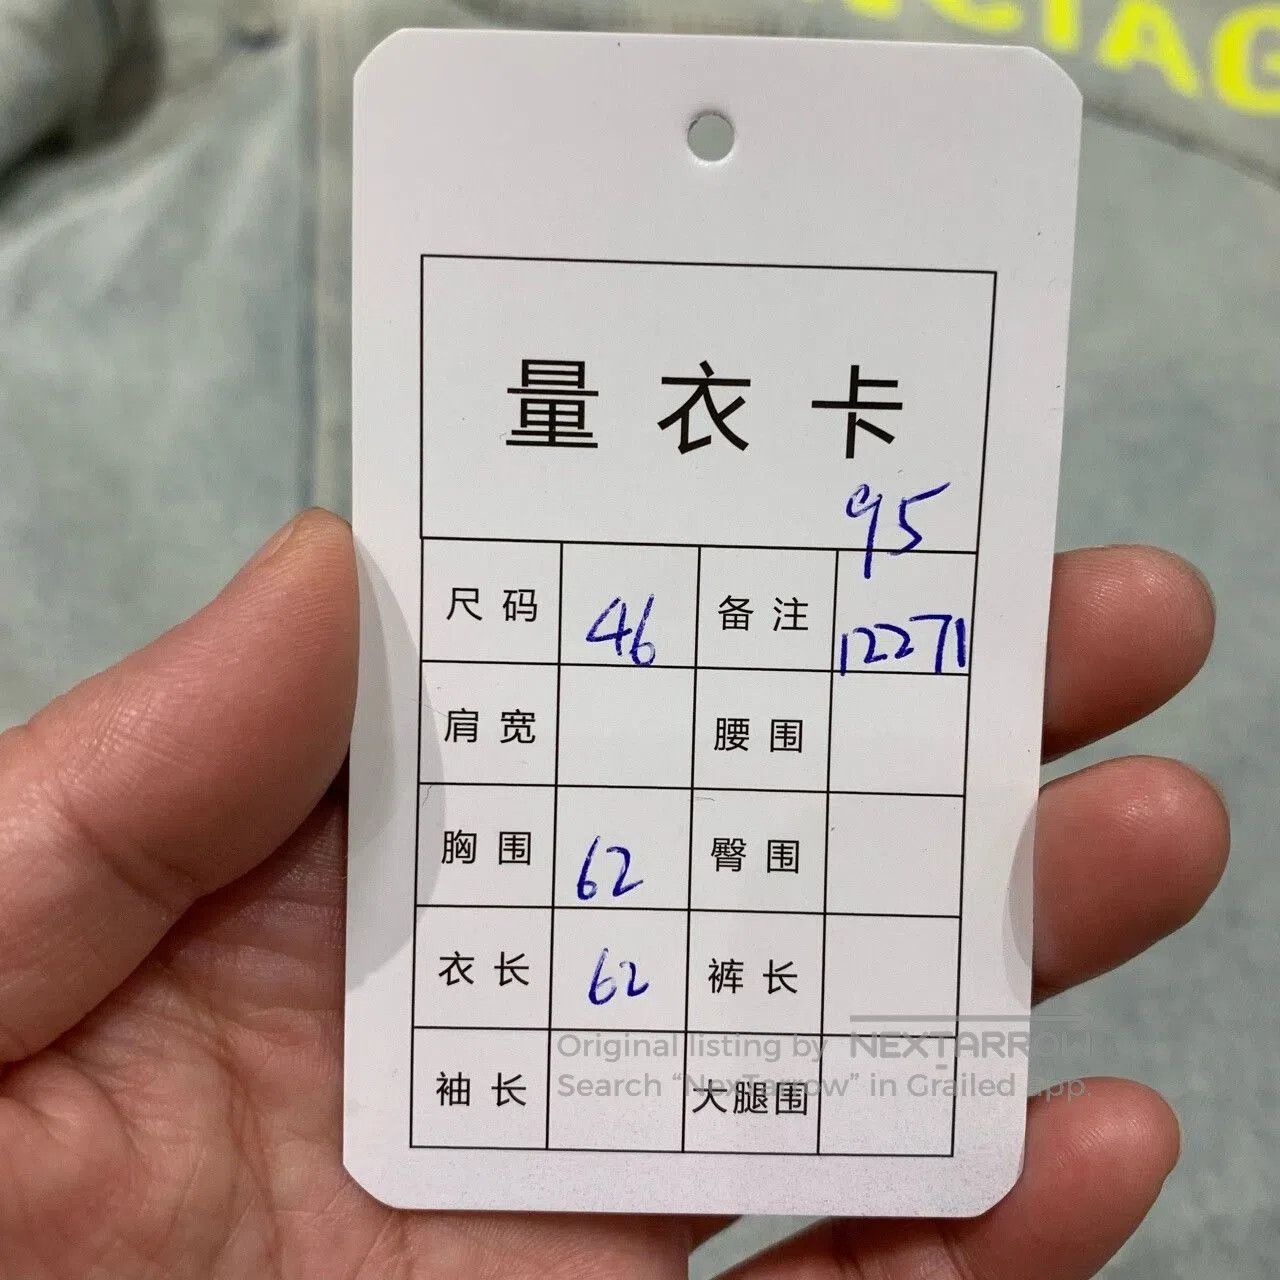 NCIAG
量衣卡
95
尺码 46 备注 12271
肩宽 腰围
胸围 62 臀围
衣长 62 裤长
袖长 大腿围
Original listing by NEXTARROW
Search “NexTarrow” in Grailed app.